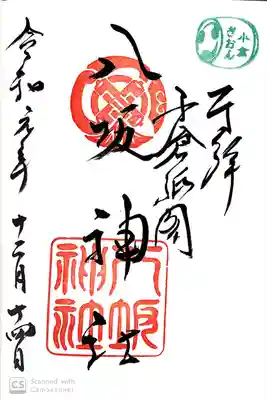 小倉
ぎおん
奉拝
小倉祇園
八坂神社
八坂
神社
令和元年 十二月 十四日
CS Scanned with
CamScanner